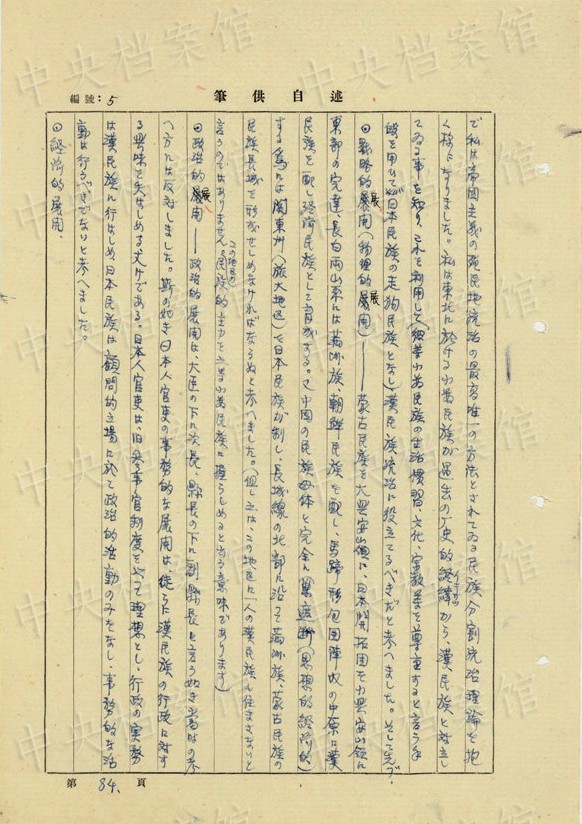 中央档案馆
編號:5
筆供自述
で私は帝国主義の殖民地統治の最高唯一の方法とされてゐる民族分割統治理論を抱
く様になりました。私は東北に於ける少数民族が過去の歴史的経緯イキサツから、漢民族と対立し
てゐる事を知り、これを利用して(少数民族の生活慣習、文化、宗教等を尊重すると言う手
段を用ひて)日本民族の走狗民族となし漢民族統治に役立てるべきだと考へました。そして先づ、
◎戦略的展開(物理的展開)——蒙古民族を大興安嶺に、日本開拓団を小興安嶺に
東部の完達、長白両山系には満洲族、朝鮮民族を配し馬蹄形包囲陣以の中原に漢
民族を配し経済民族として育成する。又中国の民族母体と完全に遮断(思想的経済的)
する為には関東州(旅大地区)を日本民族が制し、長城線の北部に沿って満洲族、蒙古民族の
民族長城を形成せしめなければならぬと考へました。(但し之は、この地区に一人の漢民族も住まさないと
言うのではありません。この地区の民族的主力を少数民族に握らしめると言う意味であります)
◎政治的展開——政治的展開は、大臣の下に次長、県長の下に副県長と言う如き当時の考
へ方には反対しました。斯の如き日本人官吏の事務的な展開は徒らに漢民族の行政に対す
る興味を失はしめる丈けである。日本人官吏は、旧参事官制度を以って理想とし、行政の実務
は漢民族に行はしめ日本民族は顧問的立場に於て政治的活動のみをなし、事務的な活
動は行うべきでないと考へました。
◎経済的展開。
第84.頁